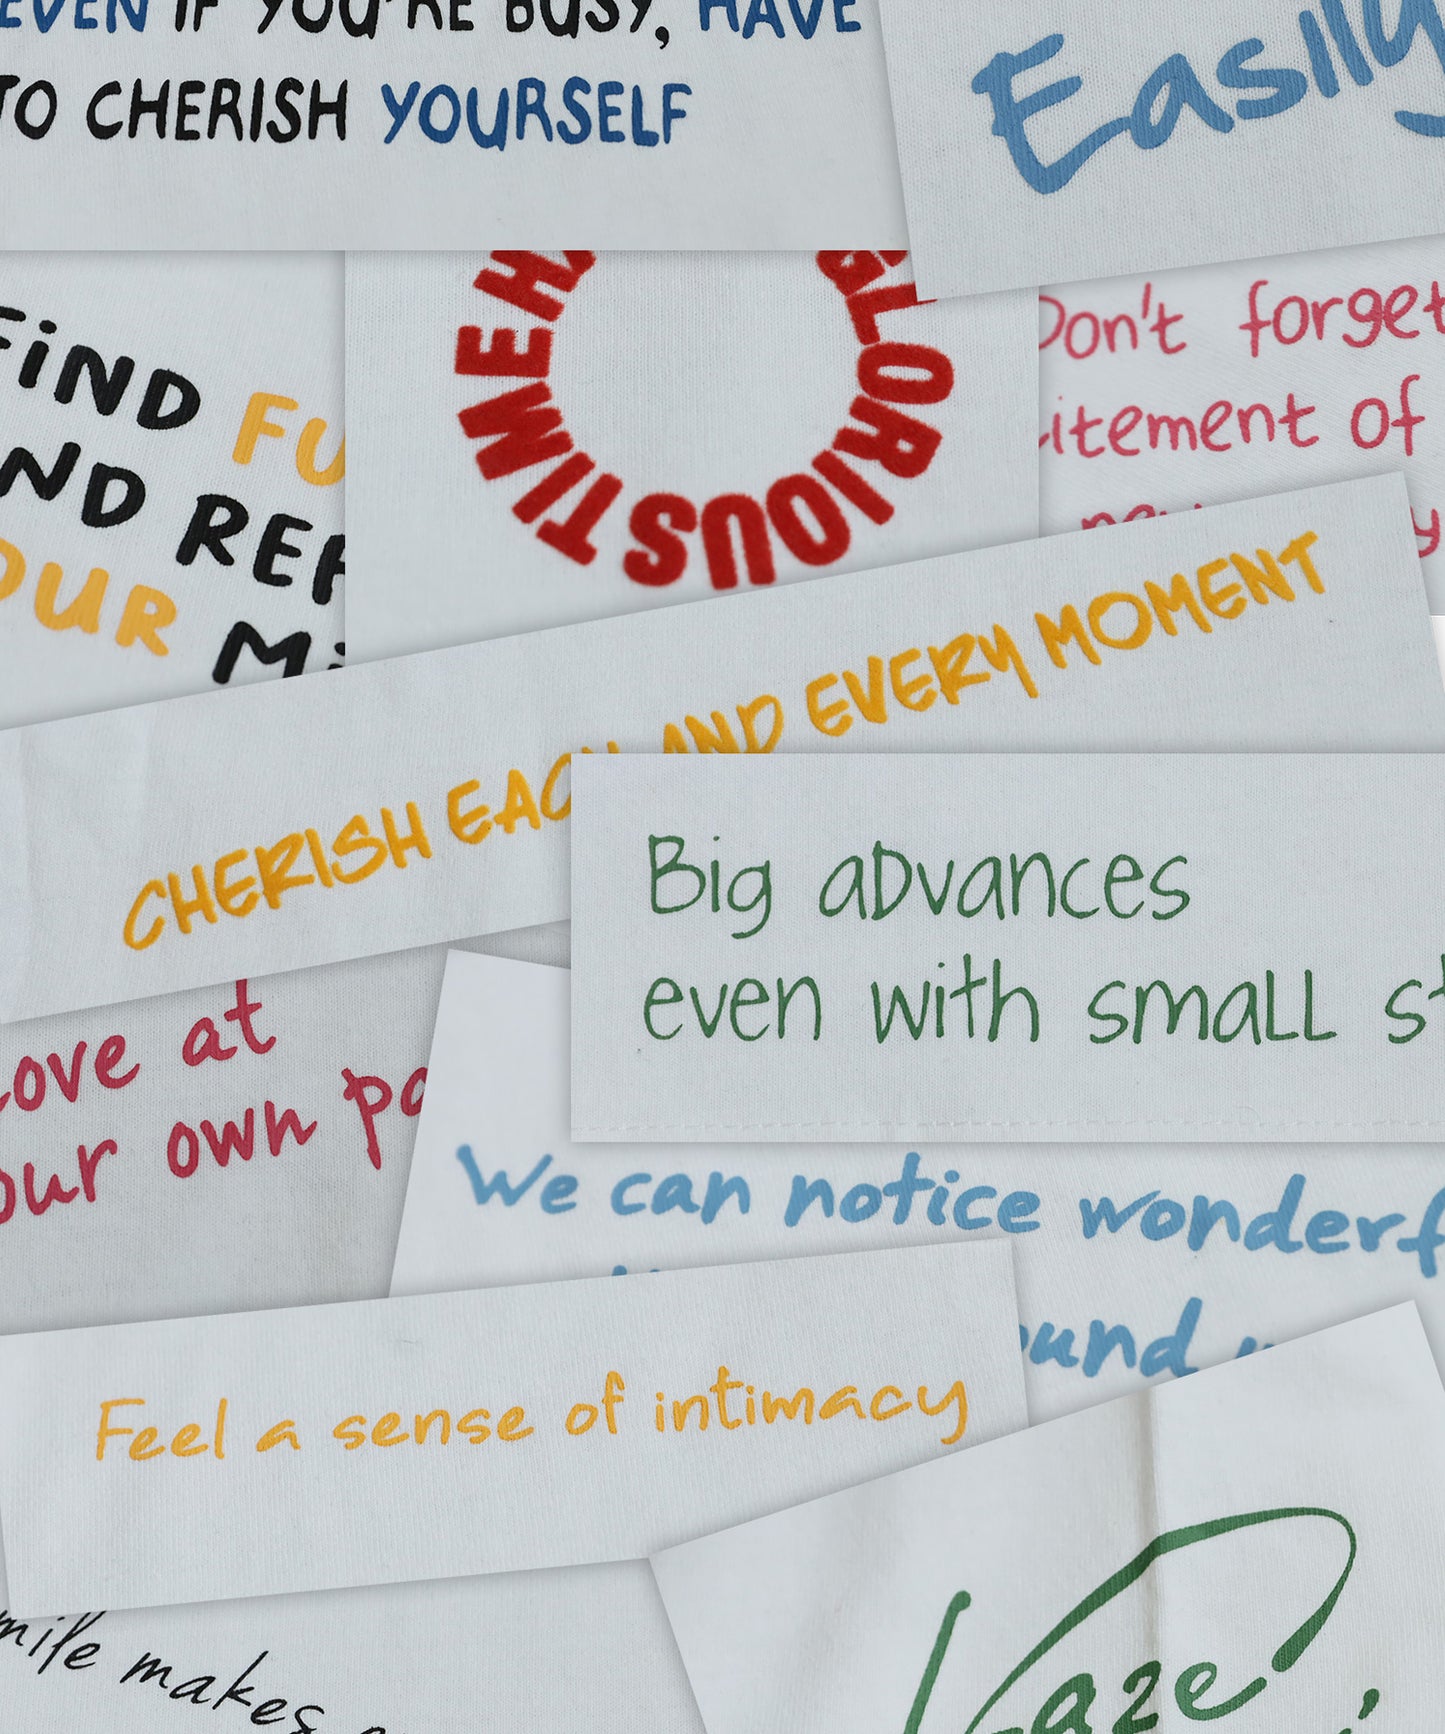 EVEN IF YOU'RE BUSY, HAVE
TO CHERISH YOURSELF
Easily
FIND FU
ND REF
OUR Mi
GLORIOUS TIME HA
Don't forget
itement of
new
CHERISH EACH AND EVERY MOMENT
Big advances
even with small st
Love at
our own pa
We can notice wonderf
ound
Feel a sense of intimacy
mile makes